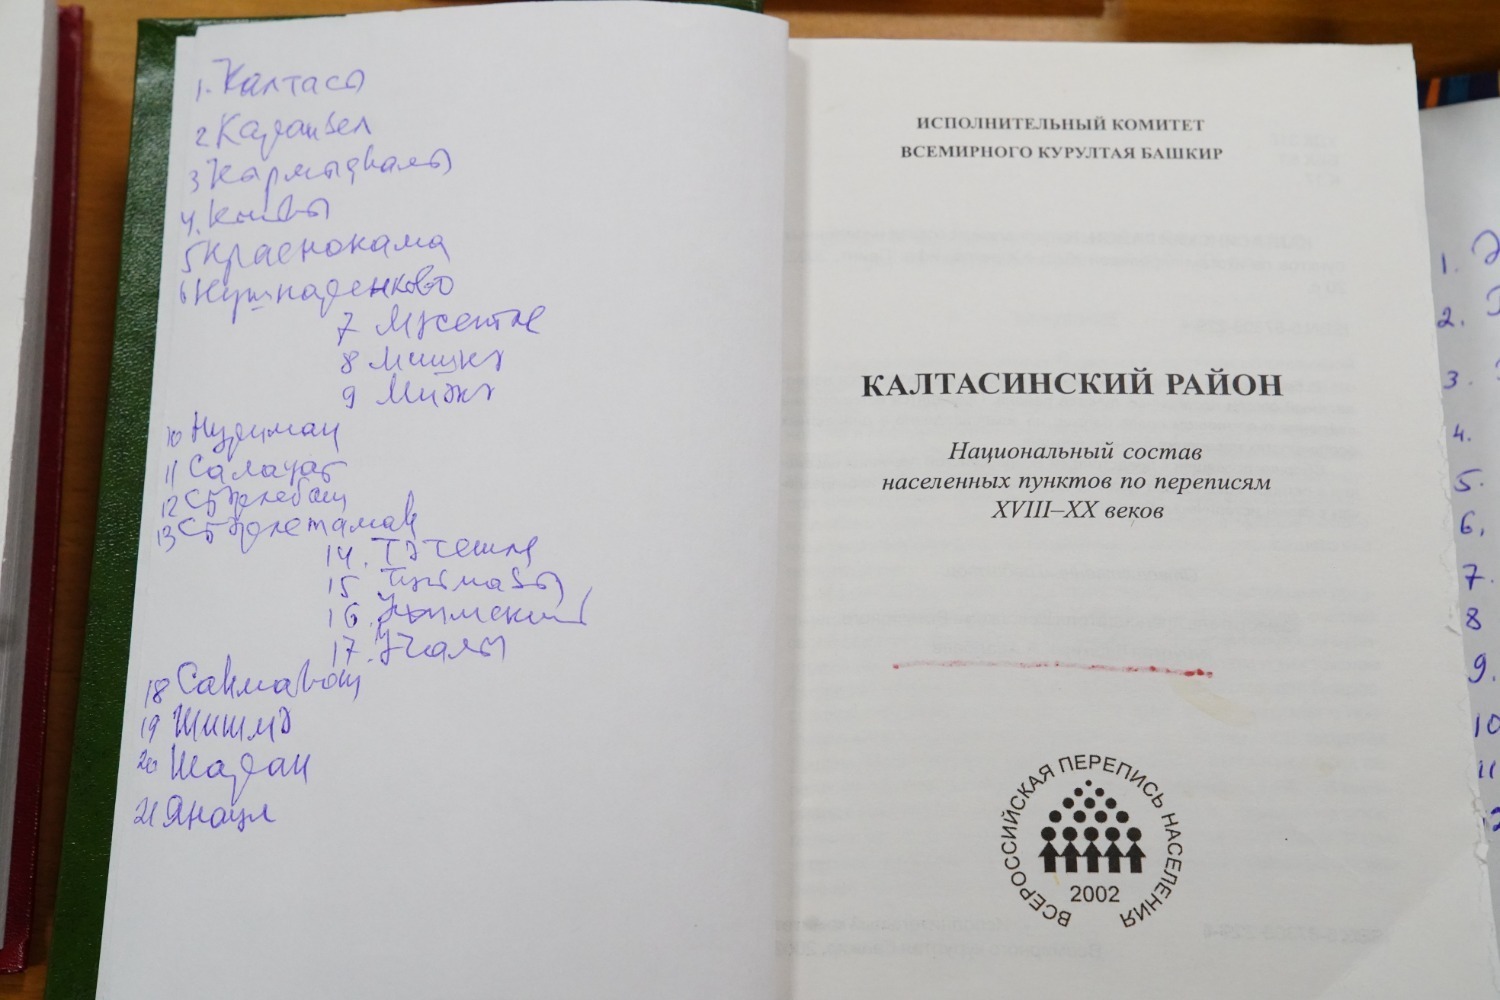 1. Калтасы
2 Караидел
3 Кармаскалы
4. Киги
5 Краснокама
6 Кушнаренково
7 Мусетле
8 Мишкә
9 Миәкә
10 Нуриман
11 Салауат
12 Стәрлебаш
13 Стәрлетамак
14. Тәтешле
15. Туймазы
16. Уфимский
17. Учалы
18 Сакмагош
19 Шишмә
20 Шаран
21 Янаул
ИСПОЛНИТЕЛЬНЫЙ КОМИТЕТ
ВСЕМИРНОГО КУРУЛТАЯ БАШКИР
КАЛТАСИНСКИЙ РАЙОН
Национальный состав
населенных пунктов по переписям
XVIII–XX веков
ВСЕРОССИЙСКАЯ ПЕРЕПИСЬ НАСЕЛЕНИЯ
2002
1.
2.
3.
4.
5.
6.
7.
8
9.
10
11
12